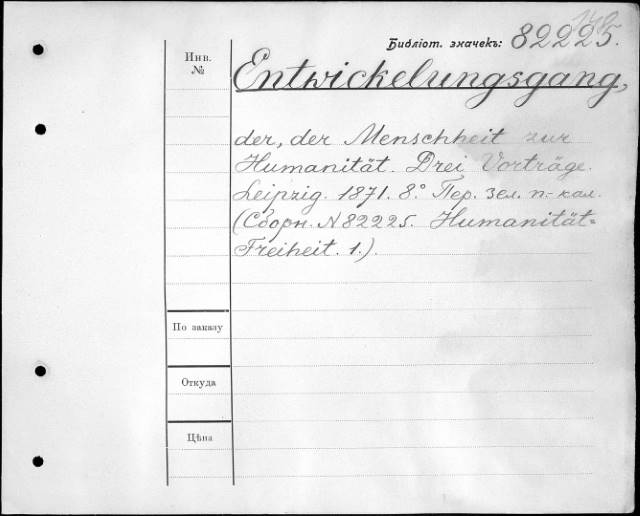 Библіот. значекъ: 82225.
Инв.
№
Entwickelungsgang,
der, der Menschheit zur
Humanität. Drei Vorträge.
Leipzig. 1871. 8.° Пер. зел. п.-кал.
(Сборн. N 82225. Humanität-
Freiheit. 1.).
По заказу
Откуда
Цѣна